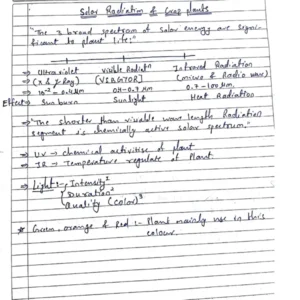 Solar Radiation & Crop plants
"The 3 broad spectrum of solar energy are signi-
ficant to plant life:"
⇒ Ultraviolet    Visible Radiatn    Infrared Radiation
⇒ (α & γ-Ray)    (VIBGYOR)    (micro & Radio wave)
⇒ 10⁻² – 0.4μm    0.4-0.7 μm    0.7-100μm
Effect⇒ Sun burn    Sunlight    Heat Radiation
⇒ "The shorter than visuable wave length Radiation
segment is chemically active solar spectrum."
⇒ UV → chemical activities of plant
⇒ IR → Temperature regulate of Plant.
⇒ Light:- Intensity¹
Duration²
Quality (color)³
* Green, orange & Red :- Plant mainly use in this
colour.